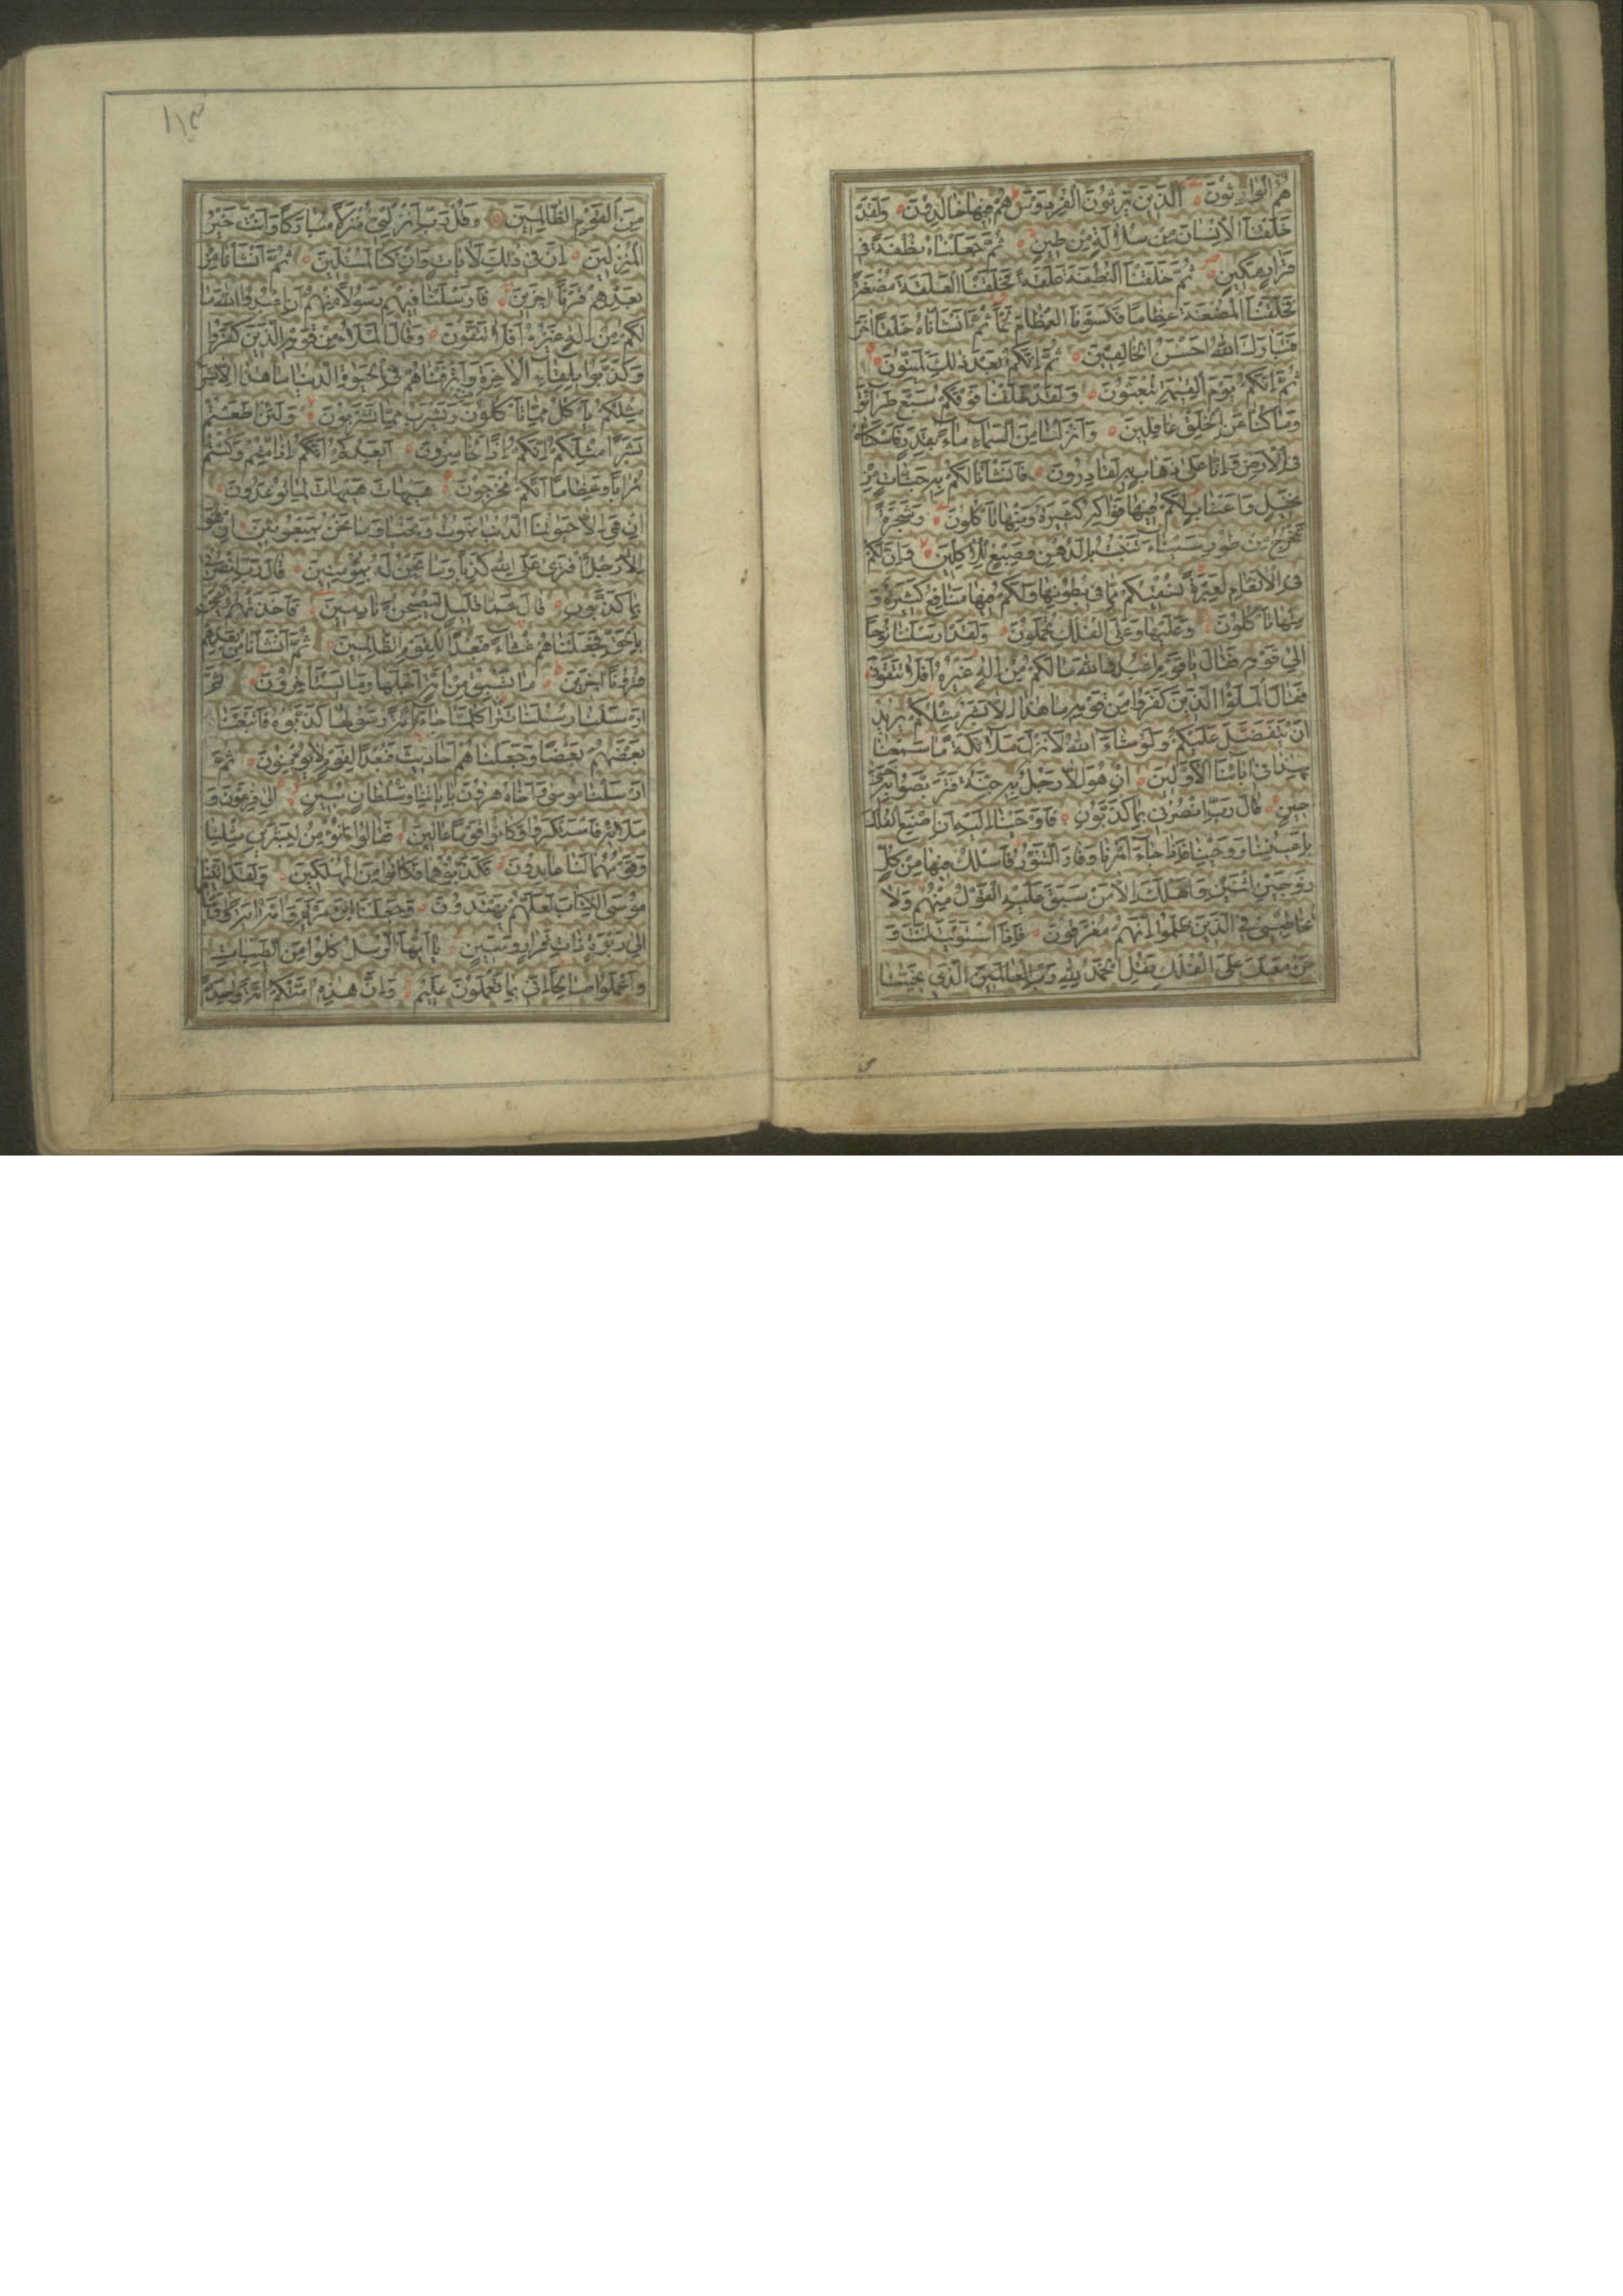 هُمُ الْوَارِثُونَ الَّذِينَ يَرِثُونَ الْفِرْدَوْسَ هُمْ فِيهَا خَالِدُونَ وَلَقَدْ
خَلَقْنَا الْاِنْسَانَ مِنْ سُلَالَةٍ مِنْ طِينٍ ثُمَّ جَعَلْنَاهُ نُطْفَةً فِى
قَرَارٍ مَكِينٍ ثُمَّ خَلَقْنَا النُّطْفَةَ عَلَقَةً فَخَلَقْنَا الْعَلَقَةَ مُضْغَةً
فَخَلَقْنَا الْمُضْغَةَ عِظَامًا فَكَسَوْنَا الْعِظَامَ لَحْمًا ثُمَّ اَنْشَاْنَاهُ خَلْقًا اٰخَرَ
فَتَبَارَكَ اللّٰهُ اَحْسَنُ الْخَالِقِينَ ثُمَّ اِنَّكُمْ بَعْدَ ذٰلِكَ لَمَيِّتُونَ
ثُمَّ اِنَّكُمْ يَوْمَ الْقِيٰمَةِ تُبْعَثُونَ وَلَقَدْ خَلَقْنَا فَوْقَكُمْ سَبْعَ طَرَآئِقَ
وَمَا كُنَّا عَنِ الْخَلْقِ غَافِلِينَ وَاَنْزَلْنَا مِنَ السَّمَآءِ مَآءً بِقَدَرٍ فَاَسْكَنَّاهُ
فِى الْاَرْضِ وَاِنَّا عَلٰى ذَهَابٍ بِهِ لَقَادِرُونَ فَاَنْشَاْنَا لَكُمْ بِهِ جَنَّاتٍ مِنْ
نَخِيلٍ وَاَعْنَابٍ لَكُمْ فِيهَا فَوَاكِهُ كَثِيرَةٌ وَمِنْهَا تَاْكُلُونَ وَشَجَرَةً
تَخْرُجُ مِنْ طُورِ سَيْنَآءَ تَنْبُتُ بِالدُّهْنِ وَصِبْغٍ لِلْاٰكِلِينَ وَاِنَّ لَكُمْ
فِى الْاَنْعَامِ لَعِبْرَةً نُسْقِيكُمْ مِمَّا فِى بُطُونِهَا وَلَكُمْ فِيهَا مَنَافِعُ كَثِيرَةٌ وَ
مِنْهَا تَاْكُلُونَ وَعَلَيْهَا وَعَلَى الْفُلْكِ تُحْمَلُونَ وَلَقَدْ اَرْسَلْنَا نُوحًا
اِلٰى قَوْمِهِ فَقَالَ يَا قَوْمِ اعْبُدُوا اللّٰهَ مَا لَكُمْ مِنْ اِلٰهٍ غَيْرُهُ اَفَلَا تَتَّقُونَ
فَقَالَ الْمَلَؤُا الَّذِينَ كَفَرُوا مِنْ قَوْمِهِ مَا هٰذَا اِلَّا بَشَرٌ مِثْلُكُمْ يُرِيدُ
اَنْ يَتَفَضَّلَ عَلَيْكُمْ وَلَوْ شَآءَ اللّٰهُ لَاَنْزَلَ مَلَآئِكَةً مَا سَمِعْنَا
بِهٰذَا فِى اٰبَآئِنَا الْاَوَّلِينَ اِنْ هُوَ اِلَّا رَجُلٌ بِهِ جِنَّةٌ فَتَرَبَّصُوا بِهِ حَتّٰى
حِينٍ قَالَ رَبِّ انْصُرْنِى بِمَا كَذَّبُونِ فَاَوْحَيْنَا اِلَيْهِ اَنِ اصْنَعِ الْفُلْكَ
بِاَعْيُنِنَا وَوَحْيِنَا فَاِذَا جَآءَ اَمْرُنَا وَفَارَ التَّنُّورُ فَاسْلُكْ فِيهَا مِنْ كُلٍّ
زَوْجَيْنِ اثْنَيْنِ وَاَهْلَكَ اِلَّا مَنْ سَبَقَ عَلَيْهِ الْقَوْلُ مِنْهُمْ وَلَا
تُخَاطِبْنِى فِى الَّذِينَ ظَلَمُوا اِنَّهُمْ مُغْرَقُونَ فَاِذَا اسْتَوَيْتَ اَنْتَ وَ
مَنْ مَعَكَ عَلَى الْفُلْكِ فَقُلِ الْحَمْدُ لِلّٰهِ الَّذِى نَجّٰينَا
١١٣
مِنَ الْقَوْمِ الظَّالِمِينَ وَقُلْ رَبِّ اَنْزِلْنِى مُنْزَلًا مُبَارَكًا وَاَنْتَ خَيْرُ
الْمُنْزِلِينَ اِنَّ فِى ذٰلِكَ لَاٰيَاتٍ وَاِنْ كُنَّا لَمُبْتَلِينَ ثُمَّ اَنْشَاْنَا مِنْ
بَعْدِهِمْ قَرْنًا اٰخَرِينَ فَاَرْسَلْنَا فِيهِمْ رَسُولًا مِنْهُمْ اَنِ اعْبُدُوا اللّٰهَ مَا
لَكُمْ مِنْ اِلٰهٍ غَيْرُهُ اَفَلَا تَتَّقُونَ وَقَالَ الْمَلَاُ مِنْ قَوْمِهِ الَّذِينَ كَفَرُوا
وَكَذَّبُوا بِلِقَآءِ الْاٰخِرَةِ وَاَتْرَفْنَاهُمْ فِى الْحَيٰوةِ الدُّنْيَا مَا هٰذَا اِلَّا بَشَرٌ
مِثْلُكُمْ يَاْكُلُ مِمَّا تَاْكُلُونَ وَيَشْرَبُ مِمَّا تَشْرَبُونَ وَلَئِنْ اَطَعْتُمْ
بَشَرًا مِثْلَكُمْ اِنَّكُمْ اِذًا لَخَاسِرُونَ اَيَعِدُكُمْ اَنَّكُمْ اِذَا مِتُّمْ وَكُنْتُمْ
تُرَابًا وَعِظَامًا اَنَّكُمْ مُخْرَجُونَ هَيْهَاتَ هَيْهَاتَ لِمَا تُوعَدُونَ
اِنْ هِىَ اِلَّا حَيَاتُنَا الدُّنْيَا نَمُوتُ وَنَحْيَا وَمَا نَحْنُ بِمَبْعُوثِينَ اِنْ هُوَ
اِلَّا رَجُلٌ افْتَرٰى عَلَى اللّٰهِ كَذِبًا وَمَا نَحْنُ لَهُ بِمُؤْمِنِينَ قَالَ رَبِّ انْصُرْنِى
بِمَا كَذَّبُونِ قَالَ عَمَّا قَلِيلٍ لَيُصْبِحُنَّ نَادِمِينَ فَاَخَذَتْهُمُ الصَّيْحَةُ
بِالْحَقِّ فَجَعَلْنَاهُمْ غُثَآءً فَبُعْدًا لِلْقَوْمِ الظَّالِمِينَ ثُمَّ اَنْشَاْنَا مِنْ بَعْدِهِمْ
قُرُونًا اٰخَرِينَ مَا تَسْبِقُ مِنْ اُمَّةٍ اَجَلَهَا وَمَا يَسْتَاْخِرُونَ ثُمَّ
اَرْسَلْنَا رُسُلَنَا تَتْرَا كُلَّمَا جَآءَ اُمَّةً رَسُولُهَا كَذَّبُوهُ فَاَتْبَعْنَا
بَعْضَهُمْ بَعْضًا وَجَعَلْنَاهُمْ اَحَادِيثَ فَبُعْدًا لِقَوْمٍ لَا يُؤْمِنُونَ ثُمَّ
اَرْسَلْنَا مُوسٰى وَاَخَاهُ هٰرُونَ بِاٰيَاتِنَا وَسُلْطَانٍ مُبِينٍ اِلٰى فِرْعَوْنَ وَ
مَلَائِهِ فَاسْتَكْبَرُوا وَكَانُوا قَوْمًا عَالِينَ فَقَالُوا اَنُؤْمِنُ لِبَشَرَيْنِ مِثْلِنَا
وَقَوْمُهُمَا لَنَا عَابِدُونَ فَكَذَّبُوهُمَا فَكَانُوا مِنَ الْمُهْلَكِينَ وَلَقَدْ اٰتَيْنَا
مُوسَى الْكِتَابَ لَعَلَّهُمْ يَهْتَدُونَ وَجَعَلْنَا ابْنَ مَرْيَمَ وَاُمَّهُ اٰيَةً وَاٰوَيْنَاهُمَا
اِلٰى رَبْوَةٍ ذَاتِ قَرَارٍ وَمَعِينٍ يَا اَيُّهَا الرُّسُلُ كُلُوا مِنَ الطَّيِّبَاتِ
وَاعْمَلُوا صَالِحًا اِنِّى بِمَا تَعْمَلُونَ عَلِيمٌ وَاِنَّ هٰذِهِ اُمَّتُكُمْ اُمَّةً وَاحِدَةً